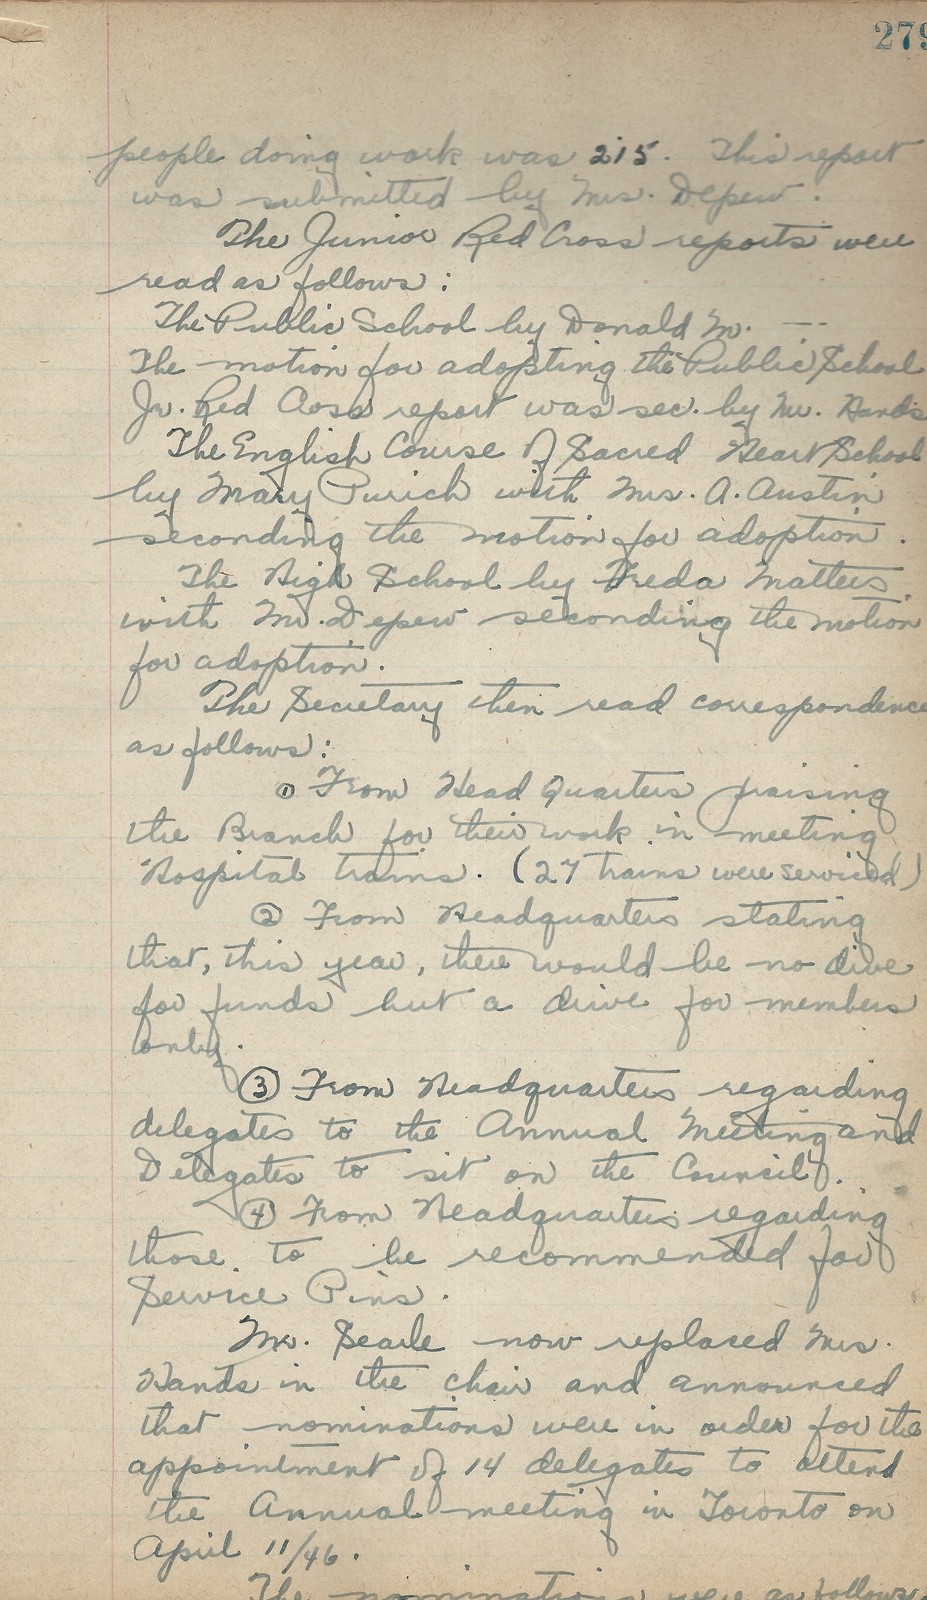 279
people doing work was 215. This report
was submitted by Mrs. Depew.
The Junior Red Cross reports were
read as follows:
The Public School by Donald M. ---
The motion for adopting the Public School
Jr. Red Cross report was sec. by Mr. Hands
The English Course of Sacred Heart School
by Mary Purich with Mrs. A. Austin
seconding the motion for adoption.
The High School by Freda Matters
with Mr. Depew seconding the motion
for adoption.
The Secretary then read correspondence
as follows:
① From Head Quarters praising
the Branch for their work in meeting
Hospital trains. (27 trains were serviced)
② From Headquarters stating
that, this year, there would be no drive
for funds but a drive for members
only.
③ From Headquarters regarding
delegates to the Annual Meeting and
Delegates to sit on the Council.
④ From Headquarters regarding
those to be recommended for
Service Pins.
Mr. Searle now replaced Mrs.
Hands in the chair and announced
that nominations were in order for the
appointment of 14 delegates to attend
the Annual meeting in Toronto on
April 11/46.
The nominations were as follows